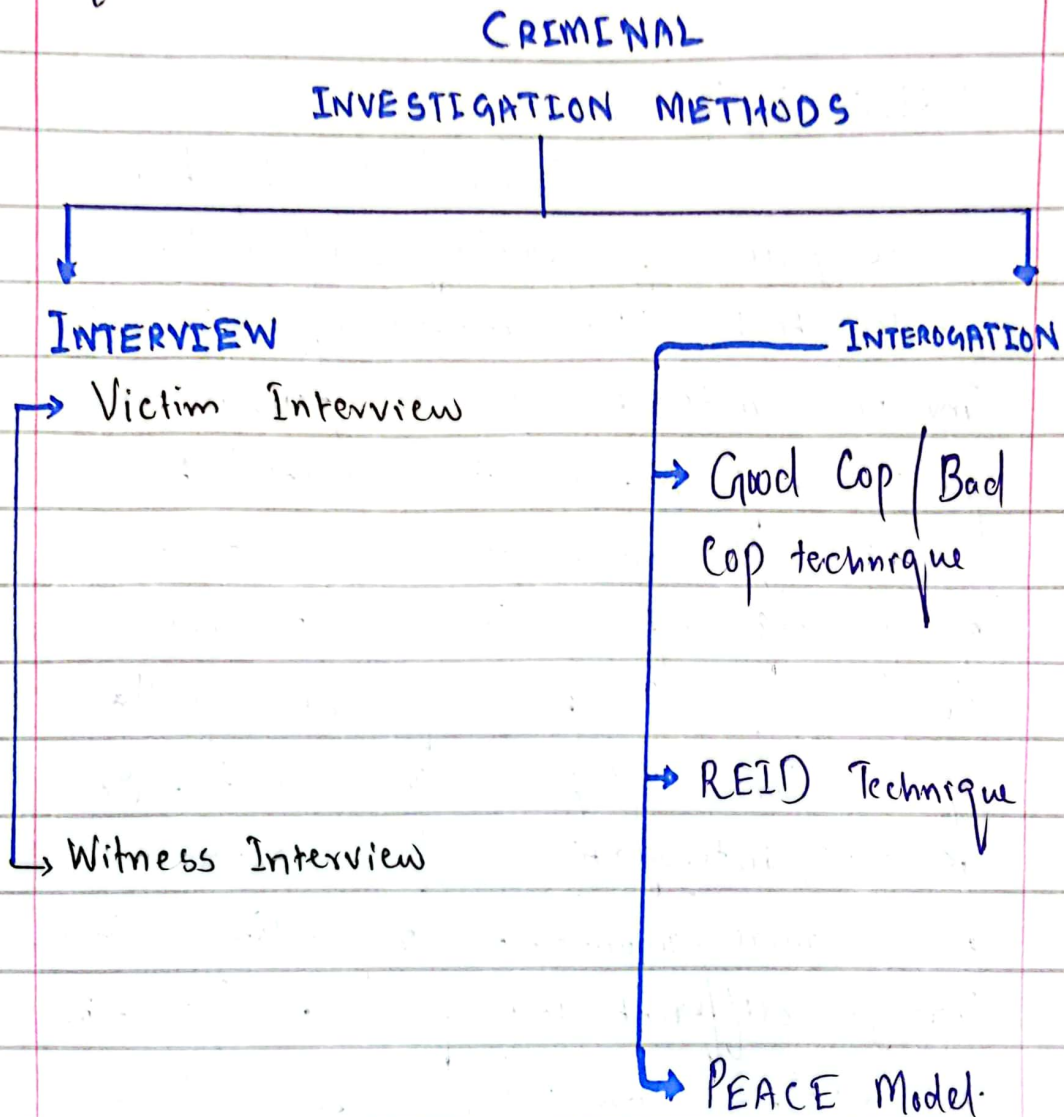 CRIMINAL
INVESTIGATION METHODS
INTERVIEW
Victim Interview
Witness Interview
INTEROGATION
Good Cop / Bad
Cop technique
REID Technique
PEACE Model.